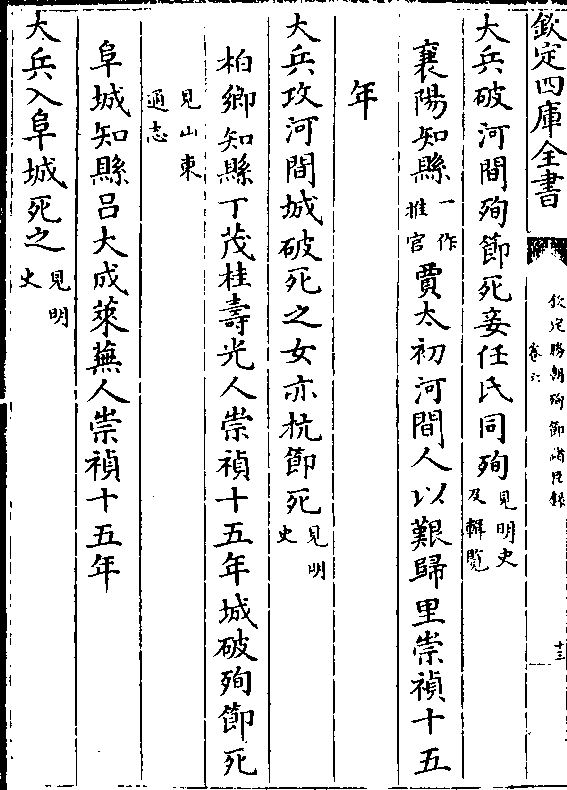 欽定四庫全書
欽定勝朝殉節諸臣錄
卷六
十三
大兵破河間殉節死妾任氏同殉見明史及輯覽
襄陽知縣一作推官賈太初河間人以艱歸里崇禎十五
年
大兵攻河間城破死之女亦抗節死見明史
柏鄉知縣丁茂桂壽光人崇禎十五年城破殉節死
見山東通志
阜城知縣吕大成萊蕪人崇禎十五年
大兵入阜城死之見明史